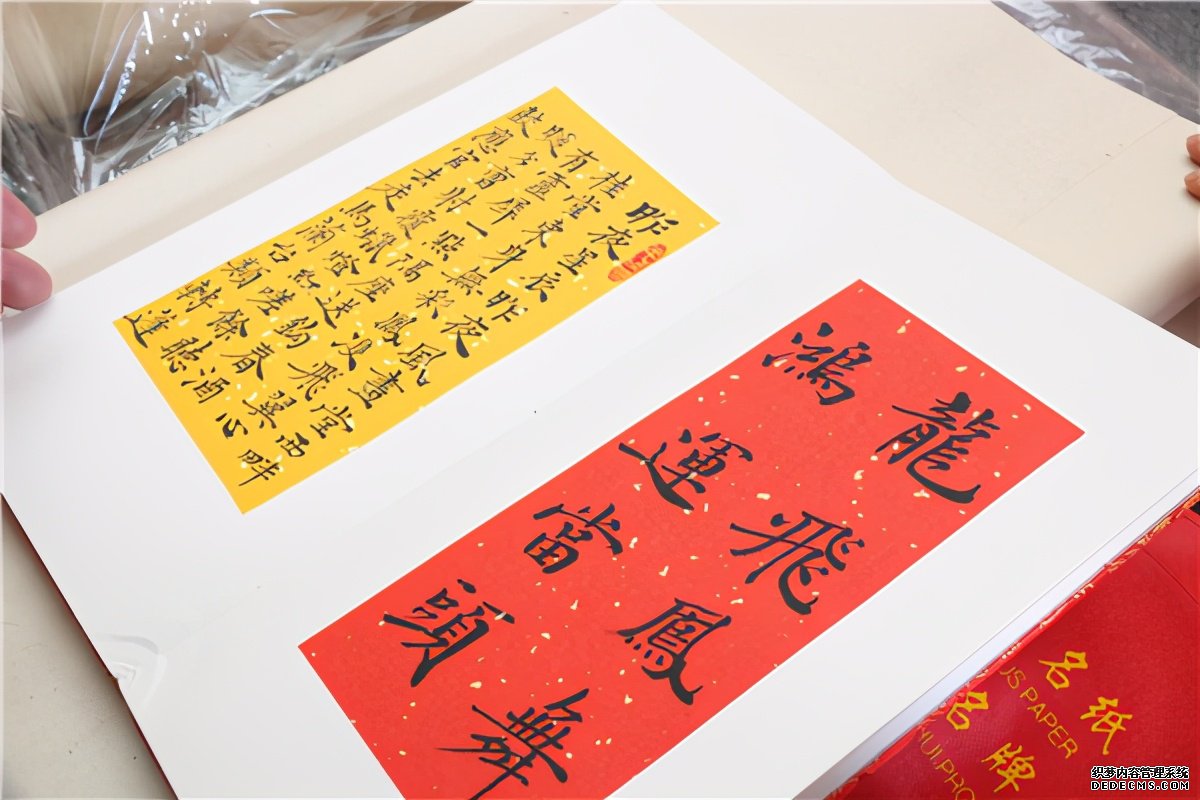 昨夜星辰昨夜風畫堂西畔
桂堂東身無彩鳳雙飛翼心
有靈犀一點隔座送鉤春酒
暖分曹射覆蠟燈紅嗟餘聽
鼓應官去走馬蘭台類轉蓬
龍飛鳳舞
鴻運當頭
名纸
US PAPER
名牌
织梦内容管理系统
DEDECMS.COM